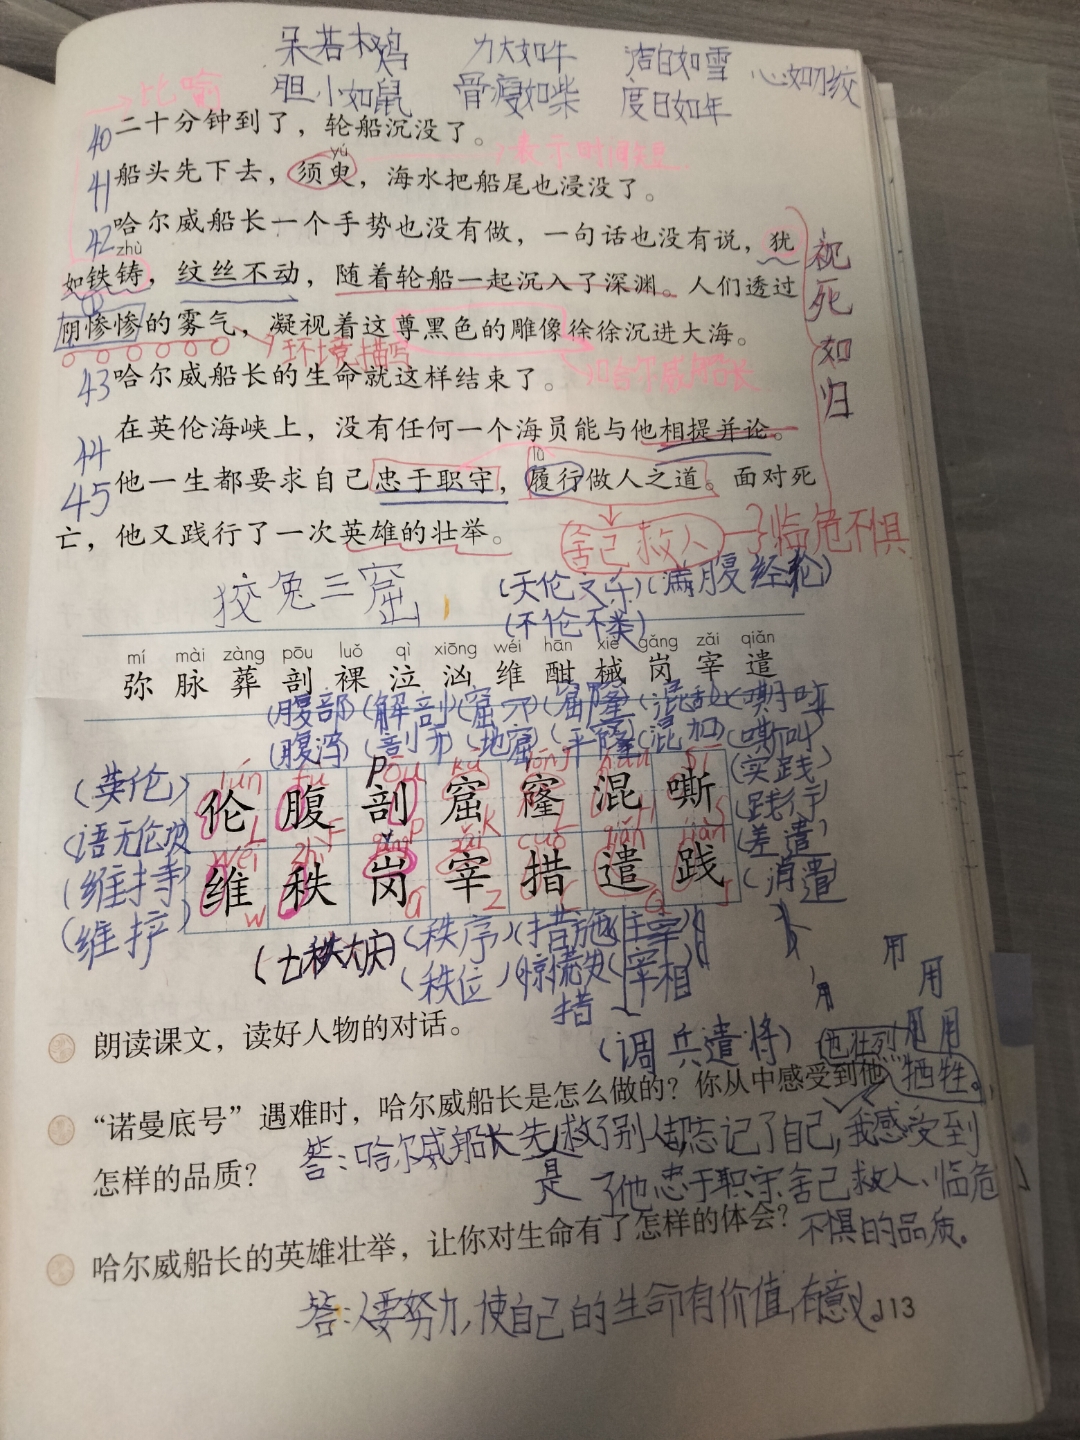 呆若木鸡 力大如牛 洁白如雪 心如刀绞
胆小如鼠 骨瘦如柴 度日如年
→比喻
40二十分钟到了，轮船沉没了。
yú
→表示时间很短
41船头先下去，须臾，海水把船尾也浸没了。
42哈尔威船长一个手势也没有做，一句话也没有说，犹
zhù
如铁铸，纹丝不动，随着轮船一起沉入了深渊。人们透过
阴惨惨的雾气，凝视着这尊黑色的雕像徐徐沉进大海。
环境描写
哈尔威船长
视死如归
43哈尔威船长的生命就这样结束了。
44在英伦海峡上，没有任何一个海员能与他相提并论。
lǚ
45他一生都要求自己忠于职守，履行做人之道。面对死
亡，他又践行了一次英雄的壮举。
舍己救人 临危不惧
狡兔三窟 (天伦之乐)(满腹经纶)
(不伦不类)
mí mài zàng pōu luǒ qì xiōng wéi hān xiè gǎng zǎi qiǎn
弥 脉 葬 剖 裸 泣 汹 维 酣 械 岗 宰 遣
(腹部)(解剖)(窟穴)(窟窿)(混乱)(嘶哑
(腹泻)(剖开)(地窟)(半窿(混加)(嘶叫
(英伦) lún fù pōu kū lóng hùn sī (实践)
伦 腹 剖 窟 窿 混 嘶 (践行)
(语无伦次 L F P K L H S (差遣)
wéi zhì gǎng zǎi cuò qiǎn jiàn
(维持) 维 秩 岗 宰 措 遣 践 (消遣
W G Z C Q J
(维护)
(七秩大庆)(秩序)(措施)(主宰)
(秩位)(惊慌失措)(宰相)
用 用 用 用 用
朗读课文，读好人物的对话。
(调兵遣将) 也壮烈 牺牲。
“诺曼底号”遇难时，哈尔威船长是怎么做的？你从中感受到他
怎样的品质？
答：哈尔威船长先救了别人却忘记了自己，我感受到
是
了他忠于职守、舍己救人、临危
不惧的品质。
哈尔威船长的英雄壮举，让你对生命有了怎样的体会？
答：人要努力，使自己的生命有价值，有意义。
113